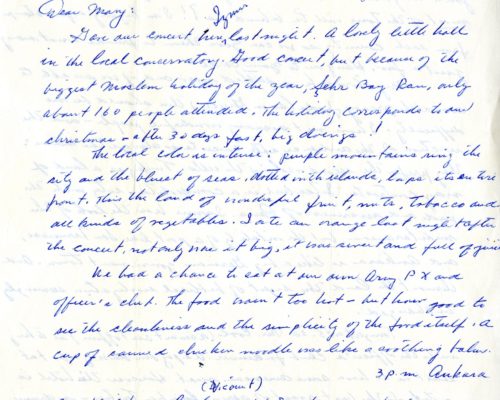 Dear Mary:
Izmir
Gave our concert here, last night. A lovely little hall
in the local conservatory. Good concert, but because of the
biggest Moslem holiday of the year, Sehr Bay Ram, only
about 160 people attended. The holiday corresponds to our
christmas - after 30 days fast, big doings!
The local color is intense: purple mountains ring the
city and the bluest of seas, dotted with islands, laps its entire
front. This the land of wonderful fruit, nuts, tobacco and
all kinds of vegetables. I ate an orange last night after
the concert, not only was it big, it was sweet and full of juice
We had a chance to eat at our own Army PX and
officer's club. The food wasn't too hot - but how good to
see the cleanliness and the simplicity of the food itself. A
cup of canned chicken noodle was like a soothing balm.
3 p.m Ankara
(Viscount)